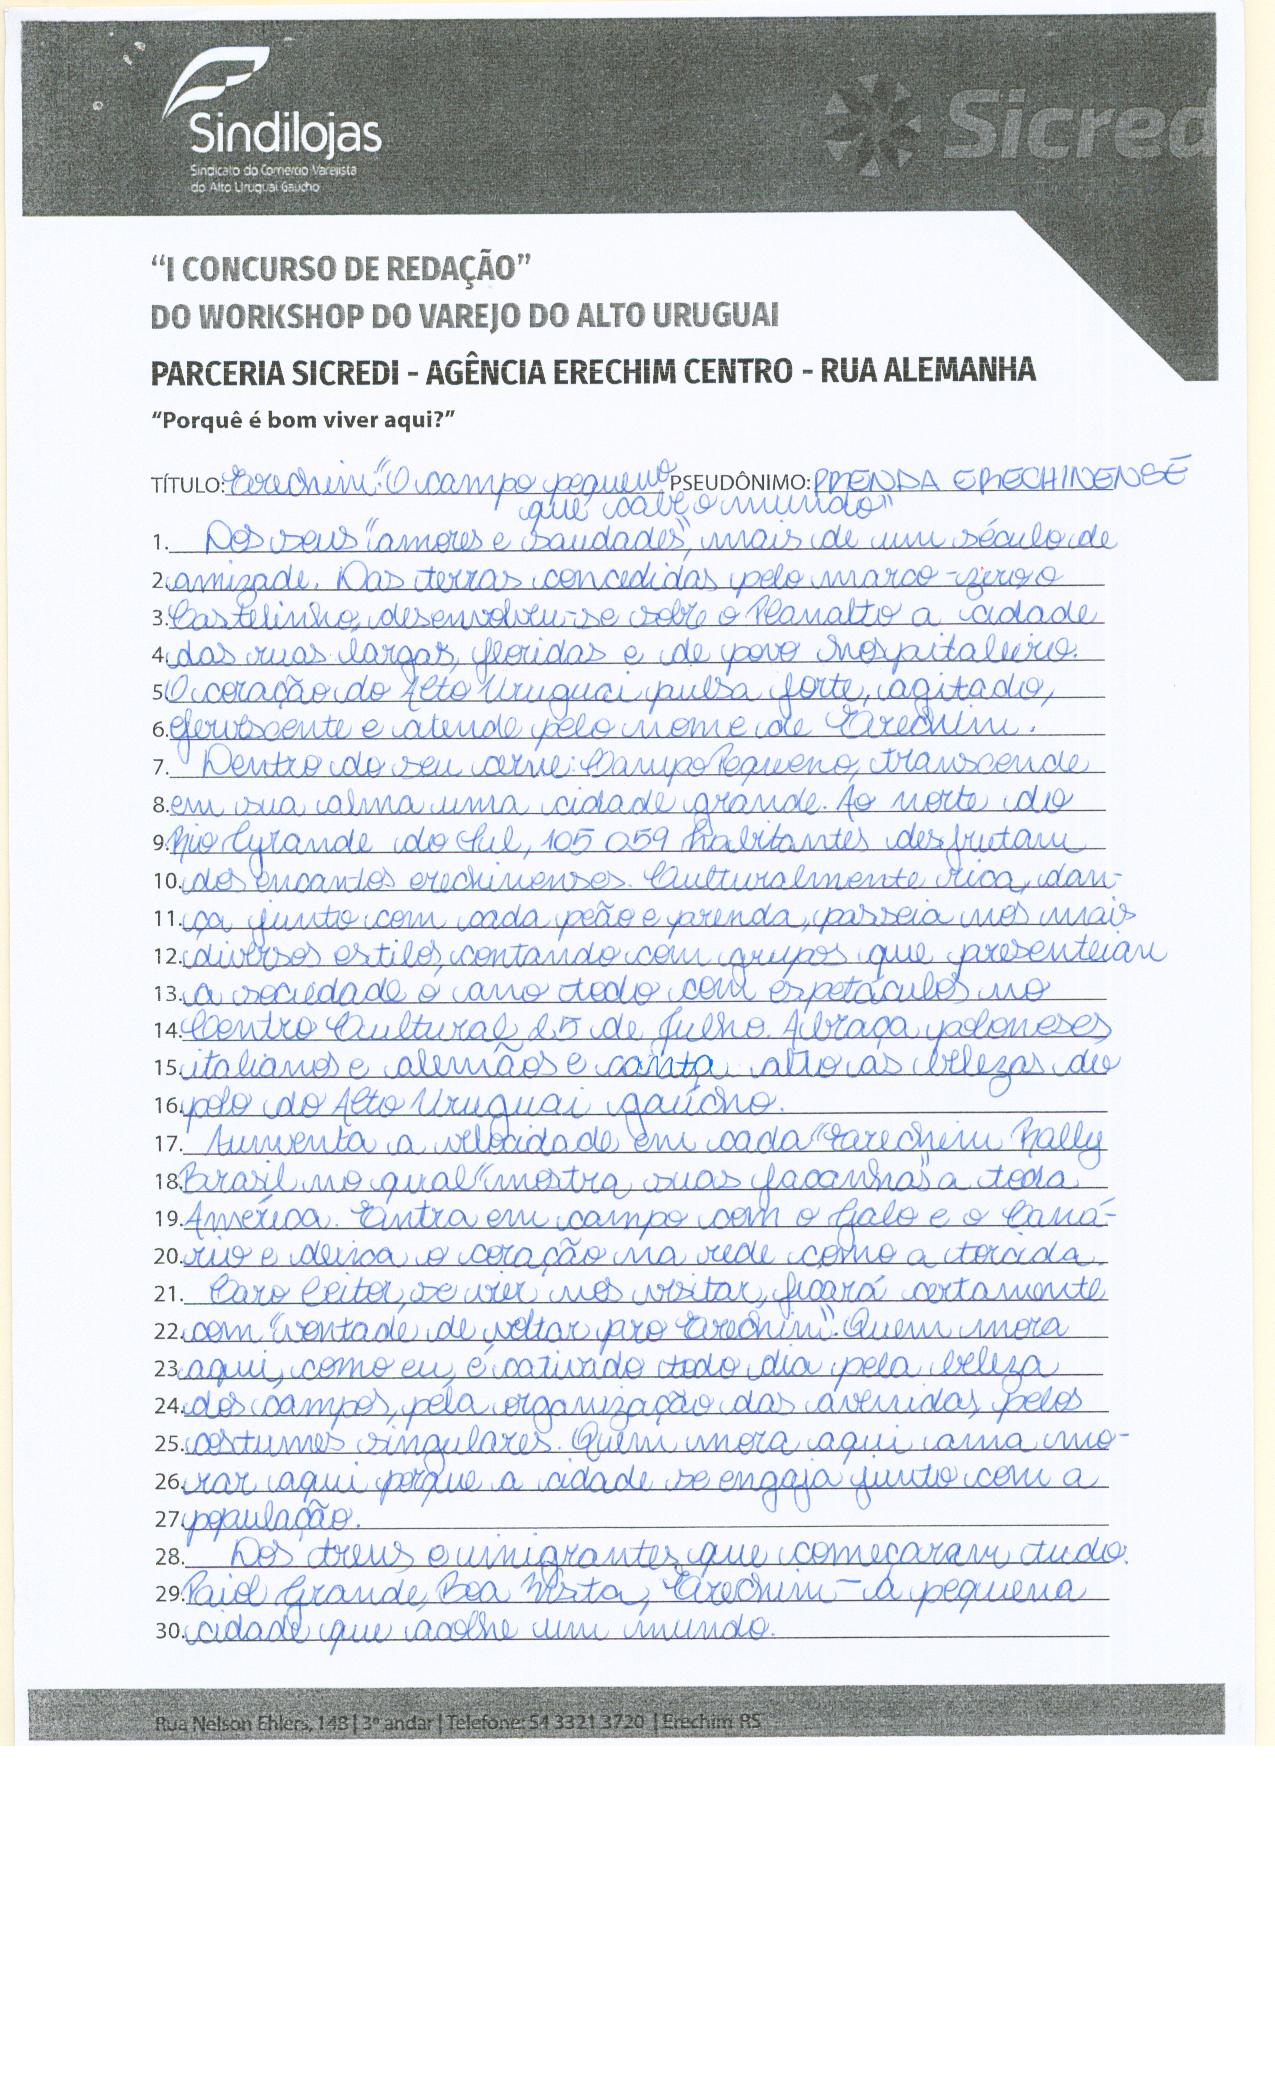 Sindilojas
Sicred
Sindicato do Comercio Varejista
do Alto Uruguai Gaúcho
“I CONCURSO DE REDAÇÃO”
DO WORKSHOP DO VAREJO DO ALTO URUGUAI
PARCERIA SICREDI - AGÊNCIA ERECHIM CENTRO - RUA ALEMANHA
“Porquê é bom viver aqui?”
TÍTULO: Erechim: "O campo pequeno PSEUDÔNIMO: PRENDA ERECHINENSE
que cabe o mundo"
1. Dos seus "amores e saudades", mais de um século de
2. amizade. Das terras concedidas pelo marco-zero, o
3. Castelinho, desenvolveu-se sobre o Planalto a cidade
4. das ruas largas, floridas e de povo hospitaleiro.
5. O coração do Alto Uruguai pulsa forte, agitado,
6. efervescente e atende pelo nome de Erechim.
7. Dentro do seu cerne: Campo Pequeno, transcende
8. em sua alma uma cidade grande. Ao norte do
9. Rio Grande do Sul, 105 059 habitantes desfrutam
10. dos encantos erechinenses. Culturalmente rica, dan-
11. ça junto com cada peão e prenda, passeia nos mais
12. diversos estilos, contando com grupos que presenteiam
13. a sociedade o ano todo com espetáculos no
14. Centro Cultural 25 de Julho. Abraça poloneses,
15. italianos e alemães e canta alto as belezas do
16. polo do Alto Uruguai gaúcho.
17. Aumenta a velocidade em cada "Erechim Rally
18. Brasil no qual "mostra suas façanhas" a toda
19. América. Entra em campo com o Galo e o Caná-
20. rio e deixa o coração na rede como a torcida.
21. Caro leitor, se vier nos visitar, ficará certamente
22. com "vontade de voltar pro Erechim". Quem mora
23. aqui, como eu, é cativado todo dia pela beleza
24. dos campos, pela organização das avenidas, pelos
25. costumes singulares. Quem mora aqui ama mo-
26. rar aqui porque a cidade se engaja junto com a
27. população.
28. Dos trens e imigrantes que começaram tudo.
29. Paiol Grande, Boa Vista, Erechim - a pequena
30. cidade que acolhe um mundo.
Rua Nelson Ehlers, 148 | 3º andar | Telefone: 54 3321 3720 | Erechim RS